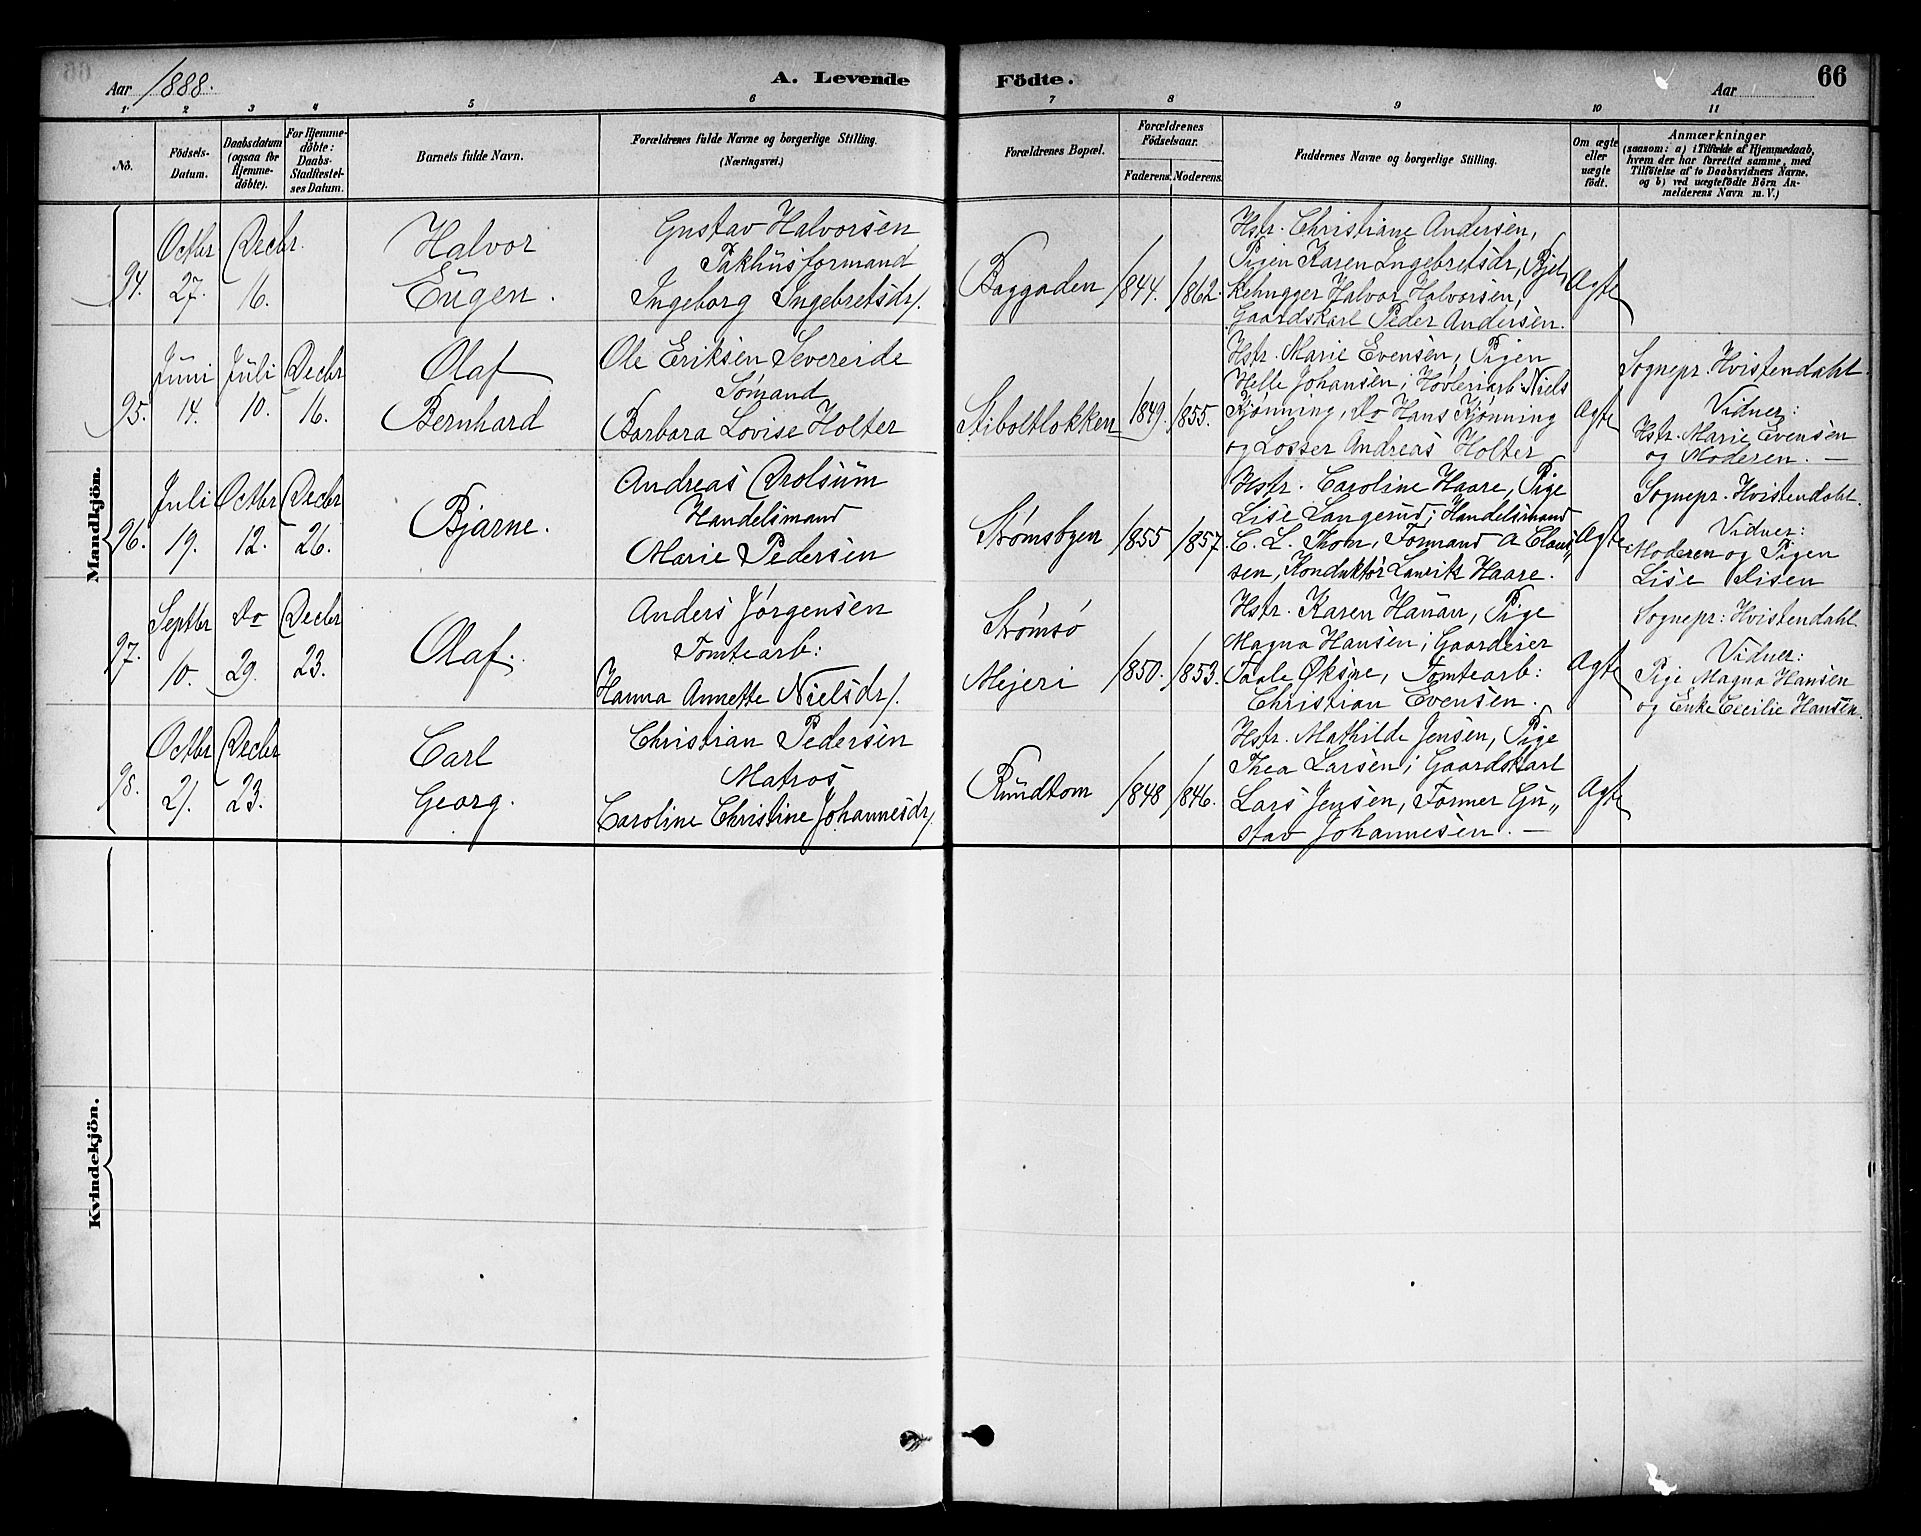 Aar 1888.
A. Levende
Födte.
Aar
66
1 2 3 4 5 6 7 8 9 10 11
No.
Födsels-
Datum.
Daabsdatum
(ogsaa for
Hjemme-
döbte).
For Hjemme-
döbte:
Daabs-
Stadfestel-
ses Datum.
Barnets fulde Navn.
Forældrenes fulde Navne og borgerlige Stilling.
(Næringsvei.)
Forældrenes Bopæl.
Forældrenes
Födselsaar.
Faderens. Moderens.
Faddernes Navne og borgerlige Stilling.
Om ægte
eller
uægte
födt.
Anmærkninger
(saasom: a) i Tilfælde af Hjemmedaab,
hvem der har forrettet samme, med
Tilföielse af to Daabsvidners Navne,
og b) ved uægtefödte Börn An-
melderens Navn m. V.)
Mandkjön.
94.
Octbr
27.
Decbr.
16.
Halvor
Eugen.
Gustav Halvorsen
Pakhusformand
Ingeborg Ingebretsdr.
Baggaden
1844.
1862.
Hstr. Christiane Andersen,
Pigen Karen Ingebretsdr, Bjel-
kehugger Halvor Halvorsen,
Gaardskarl Peder Andersen.
Ægte
95.
Juni
14.
Juli
10.
Decbr
16.
Olaf
Bernhard
Ole Eriksen Severeide
Sömand
Barbara Lovise Holter
Stiboltløkken
1849.
1855.
Hstr. Marie Evensen, Pigen
Helle Johansen; Høvleriarb: Niels
Kjønning, Do Hans Kjønning
og Losser Andreas Holter
Ægte
Sognepr. Hvistendahl.
Vidner:
Hstr. Marie Evensen
og Moderen. —
96.
Juli
19.
Octbr
12.
Decbr
26.
Bjarne.
Andreas Drolsum
Handelsmand
Marie Pedersen
Strømsbyen
1855
1857
Hstr. Caroline Haare, Pige
Lise Langerud; Handelsmand
C. L. Thom, Formand A Claus-
sen, Konduktør Lauritz Haare.
Ægte
Sognepr. Hvistendahl.
Vidner:
Moderen og Pigen
Lise
97.
Septbr
10.
Do
29.
Decbr
23.
Olaf.
Anders Jörgensen
Tomtearb:
Hanna Annette Nielsdr.
Strømsø
Mejeri
1850.
1853.
Hstr. Karen Hanan, Pige
Magna Hansen; Gaardeier
Paale Øksne, Tomtearb:
Christian Evensen.
Ægte
Sognepr: Hvistendahl
Vidner:
Pige Magna Hansen
og Enke Cecilie Hansen.
98.
Octbr
21.
Decbr
23.
Carl
Georg.
Christian Pedersen
Matros
Caroline Christine Johannesdr.
Rundtom
1848
1846.
Hstr. Mathilde Jensen, Pige
Thea Larsen; Gaardskarl
Lars Jensen, Former Gu-
stav Johannesen. —
Ægte
Kvindekjön.